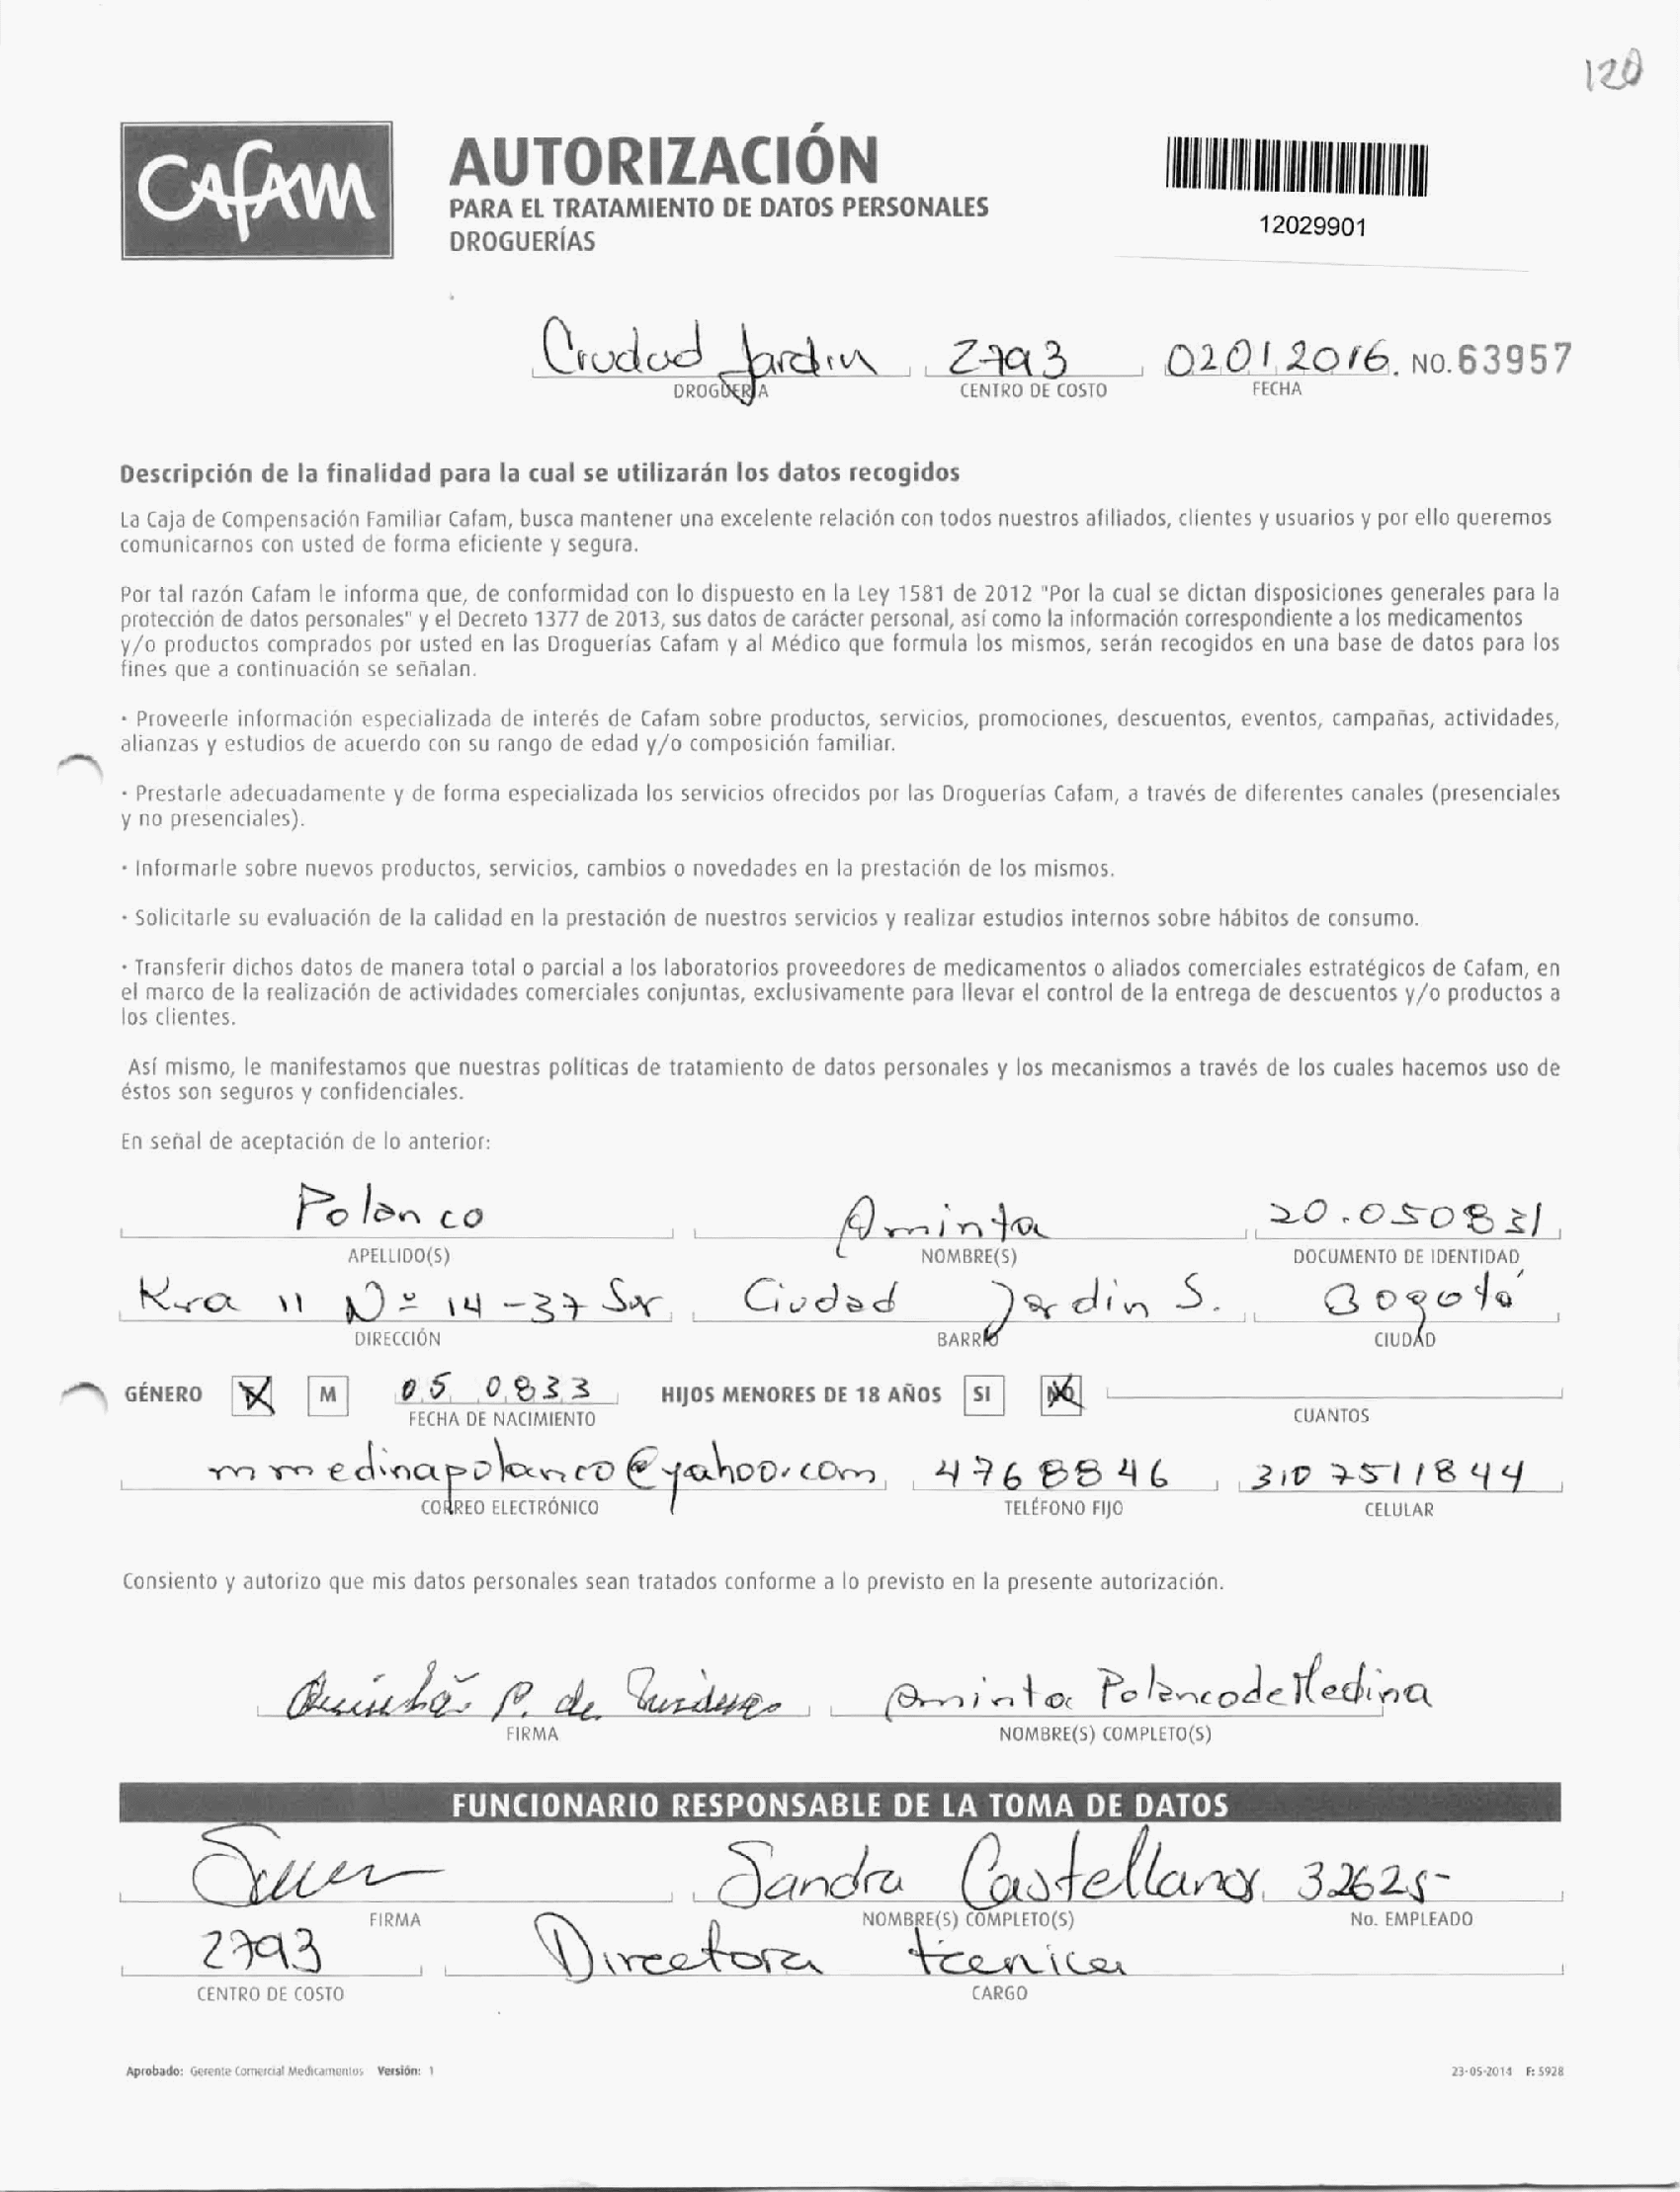 120
CAFAM
AUTORIZACIÓN
PARA EL TRATAMIENTO DE DATOS PERSONALES
DROGUERÍAS
12029901
Ciudad Jardin 2793 02012016. NO. 63957
DROGUERIA CENTRO DE COSTO FECHA
Descripción de la finalidad para la cual se utilizarán los datos recogidos
La Caja de Compensación Familiar Cafam, busca mantener una excelente relación con todos nuestros afiliados, clientes y usuarios y por ello queremos
comunicarnos con usted de forma eficiente y segura.
Por tal razón Cafam le informa que, de conformidad con lo dispuesto en la Ley 1581 de 2012 "Por la cual se dictan disposiciones generales para la
protección de datos personales" y el Decreto 1377 de 2013, sus datos de carácter personal, así como la información correspondiente a los medicamentos
y/o productos comprados por usted en las Droguerías Cafam y al Médico que formula los mismos, serán recogidos en una base de datos para los
fines que a continuación se señalan.
· Proveerle información especializada de interés de Cafam sobre productos, servicios, promociones, descuentos, eventos, campañas, actividades,
alianzas y estudios de acuerdo con su rango de edad y/o composición familiar.
· Prestarle adecuadamente y de forma especializada los servicios ofrecidos por las Droguerías Cafam, a través de diferentes canales (presenciales
y no presenciales).
· Informarle sobre nuevos productos, servicios, cambios o novedades en la prestación de los mismos.
· Solicitarle su evaluación de la calidad en la prestación de nuestros servicios y realizar estudios internos sobre hábitos de consumo.
· Transferir dichos datos de manera total o parcial a los laboratorios proveedores de medicamentos o aliados comerciales estratégicos de Cafam, en
el marco de la realización de actividades comerciales conjuntas, exclusivamente para llevar el control de la entrega de descuentos y/o productos a
los clientes.
Así mismo, le manifestamos que nuestras políticas de tratamiento de datos personales y los mecanismos a través de los cuales hacemos uso de
éstos son seguros y confidenciales.
En señal de aceptación de lo anterior:
Polanco Aminta 20.050831
APELLIDO(S) NOMBRE(S) DOCUMENTO DE IDENTIDAD
Kra 11 Nº 14-37 Sur Ciudad Jardin S. Bogotá
DIRECCIÓN BARRIO CIUDAD
GÉNERO M 05 0833 HIJOS MENORES DE 18 AÑOS SI NO
FECHA DE NACIMIENTO CUANTOS
mmedinapolanco@yahoo.com 4768846 3107511844
CORREO ELECTRÓNICO TELÉFONO FIJO CELULAR
Consiento y autorizo que mis datos personales sean tratados conforme a lo previsto en la presente autorización.
P. de Aminta Polanco de Medina
FIRMA NOMBRE(S) COMPLETO(S)
FUNCIONARIO RESPONSABLE DE LA TOMA DE DATOS
Sandra Castellanos 32625-
FIRMA NOMBRE(S) COMPLETO(S) No. EMPLEADO
2793 Directora tecnica
CENTRO DE COSTO CARGO
Aprobado: Gerente Comercial Medicamentos Versión: 1 23-05-2014 F: 5928